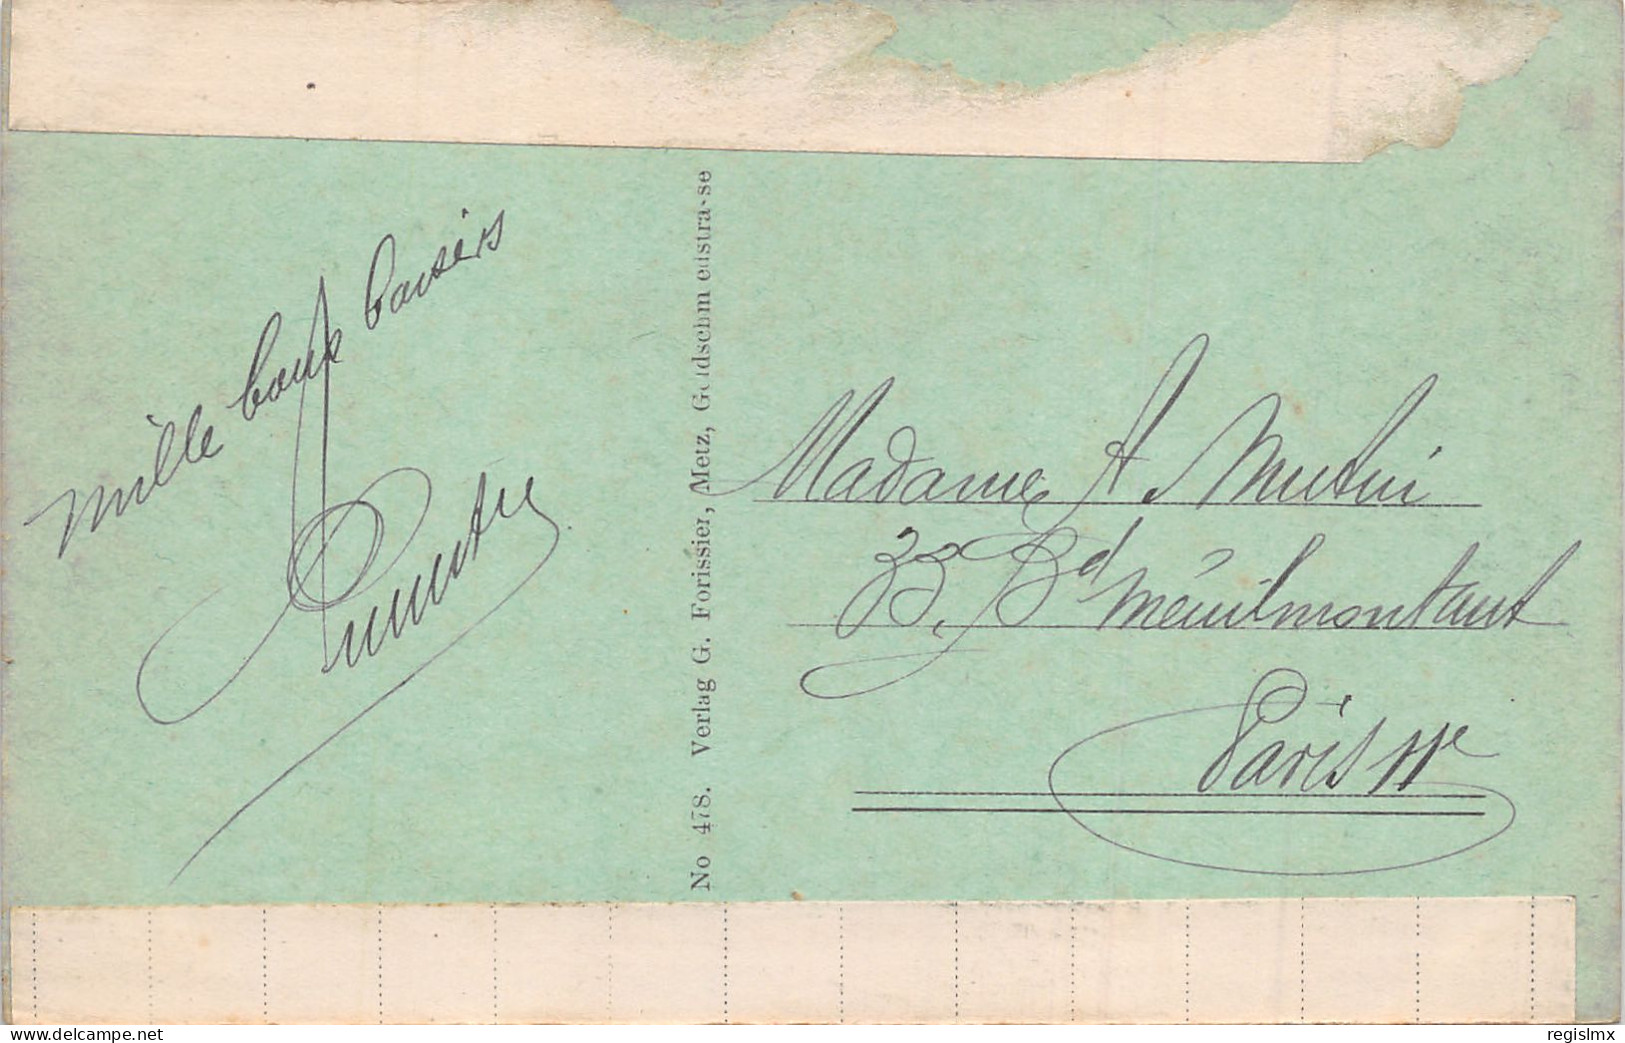 mille bons baisers
No 478. Verlag G. Forissier, Metz, Goldschmiedstrasse
Madame A Mutin
33, Bd Ménilmontant
Paris 11e
www.delcampe.net
regislmx